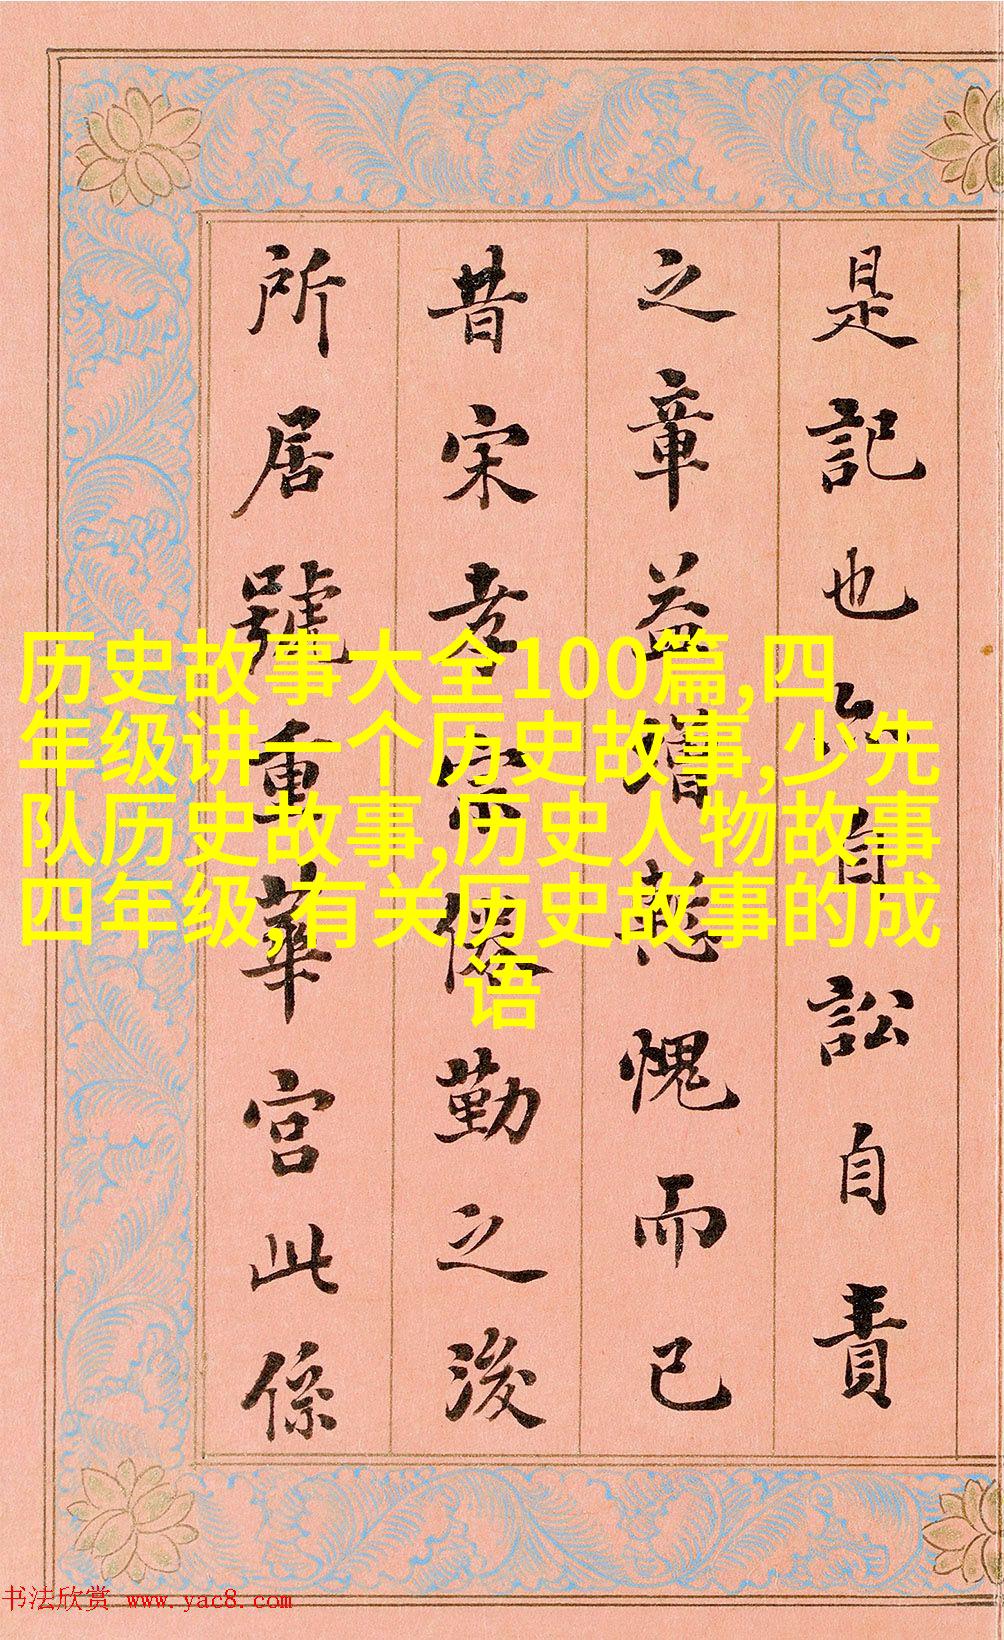 是記也亦自訟自責
之章益增慙愧而已
昔宋孝宗倦勤之後
所居號重華宮此係
历史故事大全100篇,四
年级讲一个历史故事,少先
队历史故事,历史人物故事
四年级,有关历史故事的成
语
书法欣赏 www.yac8.com